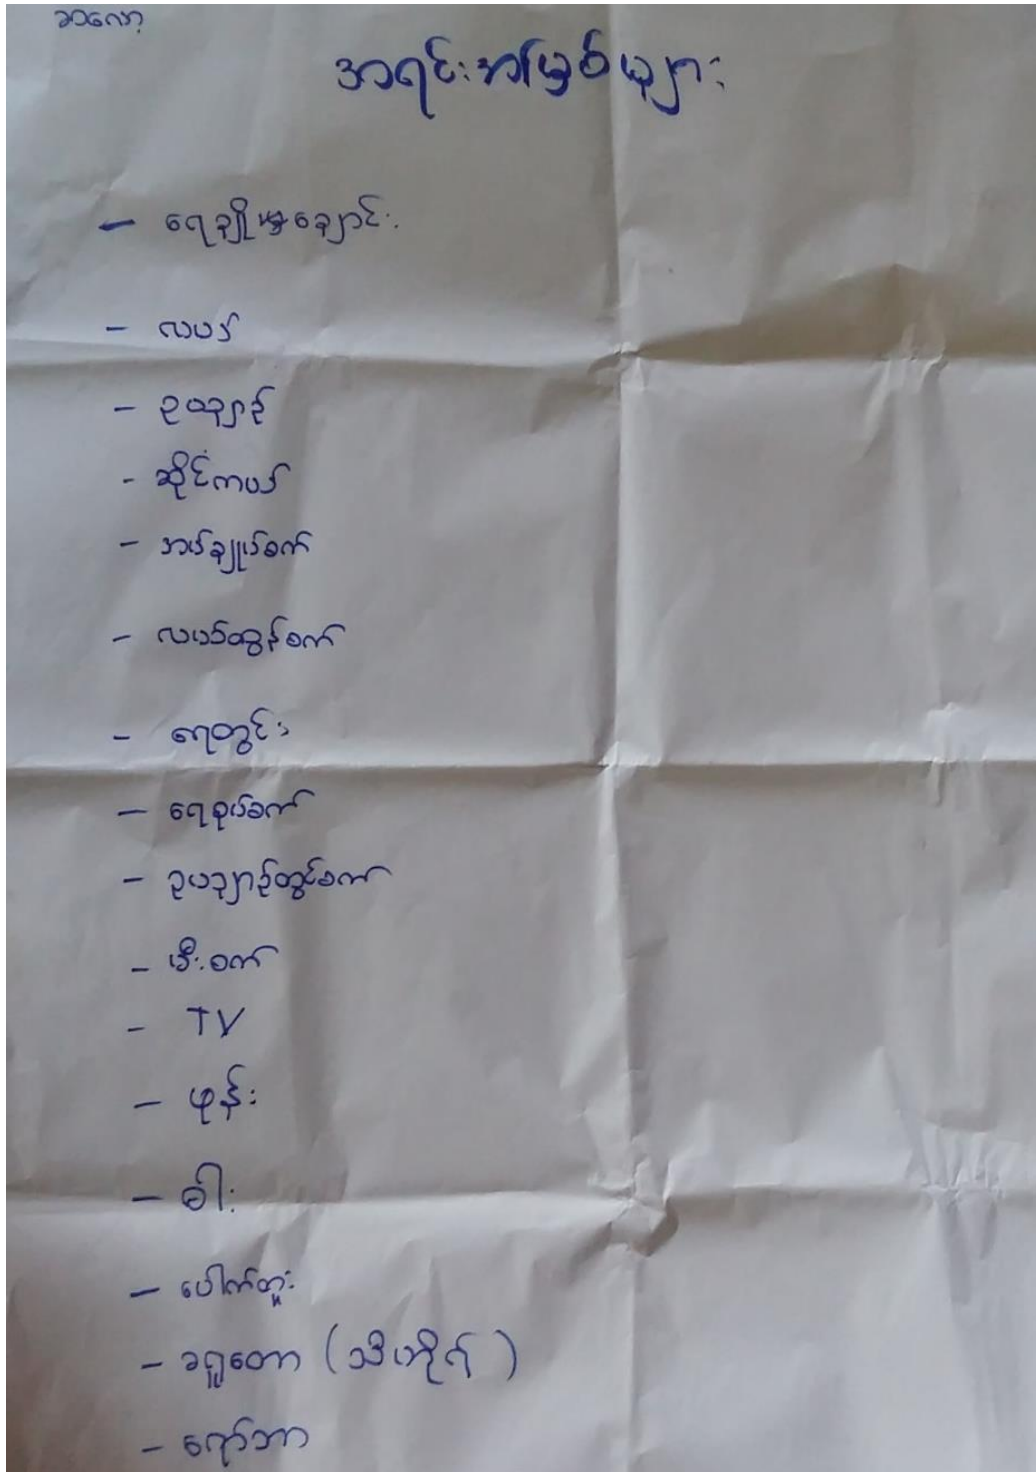 ဘလော့
အရင်းအမြစ်များ
- ရေချိုးချောင်း
- လယ်
- ဥယျာဉ်
- ဆိုင်ကယ်
- အပ်ချုပ်စက်
- လယ်ထွန်စက်
- ရေတွင်း
- ရေစုပ်စက်
- ဥယျာဉ်တွင်စက်
- မီးစက်
- TV
- ဖုန်း
- ဓါး
- ပေါက်တူး
- ခရူတော (သီဟိုဠ်)
- ရော်ဘာ